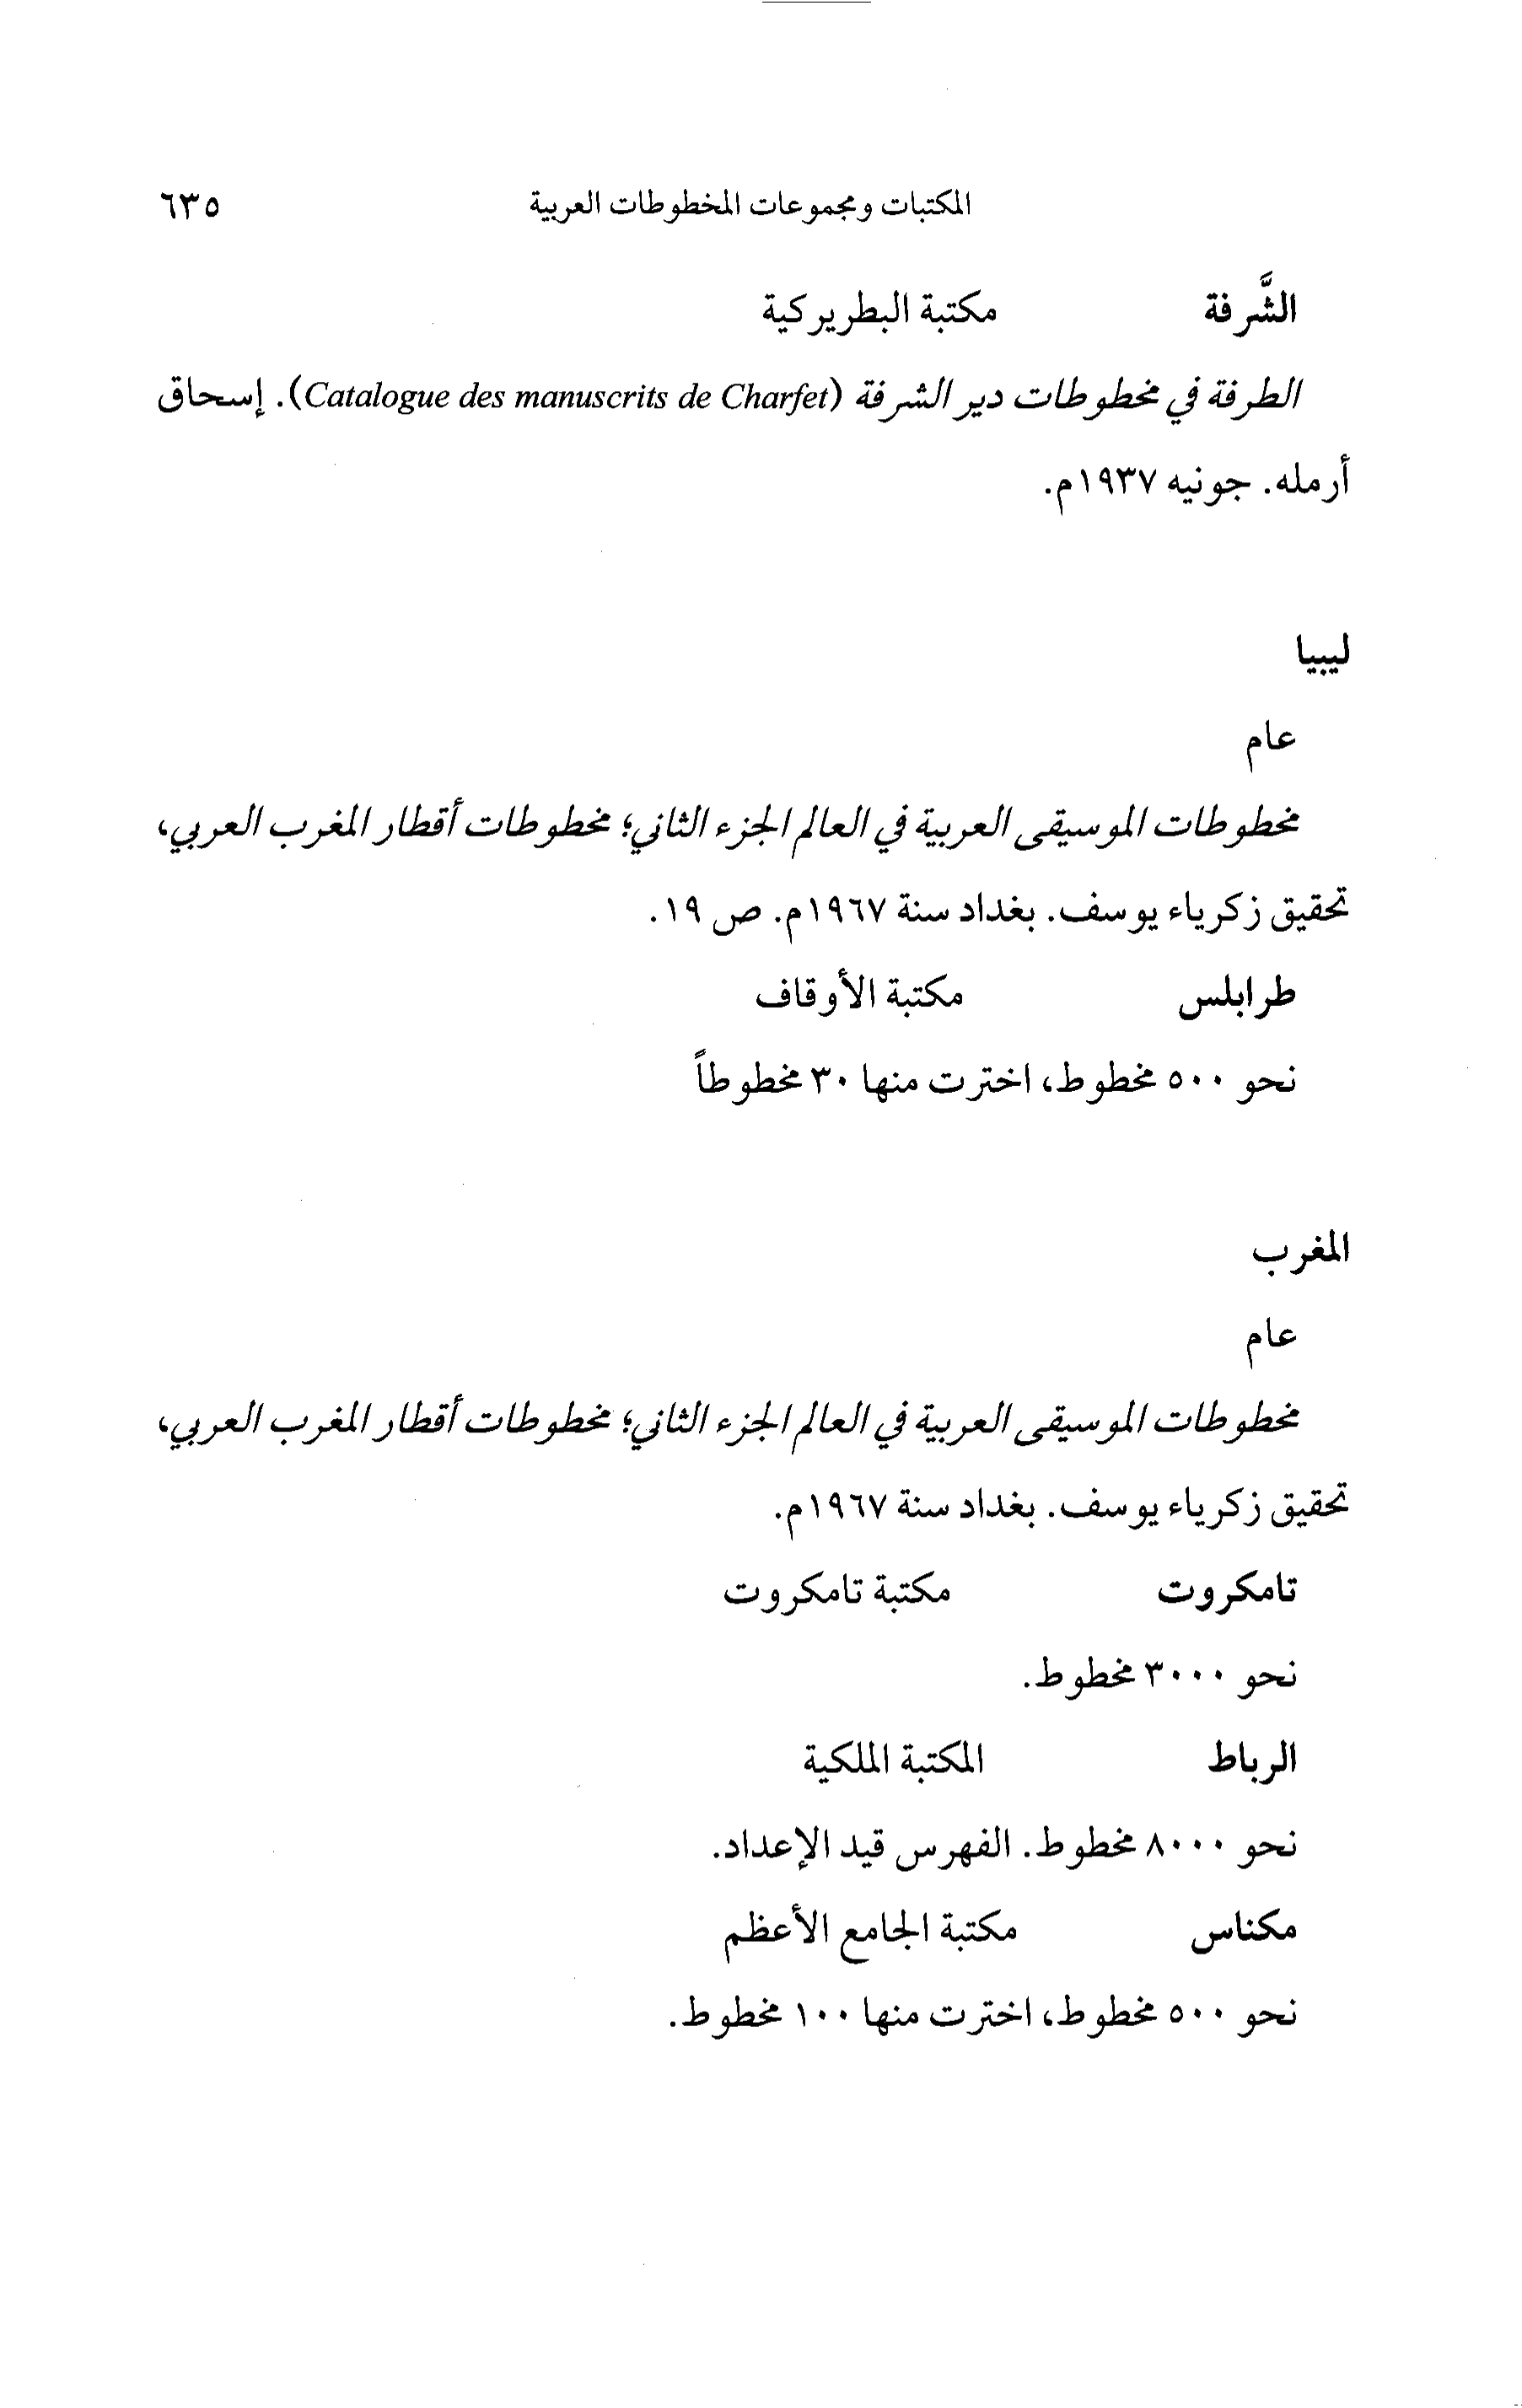 المكتبات ومجموعات المخطوطات العربية ٦٣٥
الشَّرفة مكتبة البطريركية
الطرفة في مخطوطات دير الشرفة (Catalogue des manuscrits de Charfet). إسحاق
أرمله. جونيه ١٩٣٧م.
ليبيا
عام
مخطوطات الموسيقى العربية في العالم الجزء الثاني؛ مخطوطات أقطار المغرب العربي،
تحقيق زكرياء يوسف. بغداد سنة ١٩٦٧م. ص ١٩.
طرابلس مكتبة الأوقاف
نحو ٥٠٠ مخطوط، اخترت منها ٣٠ مخطوطاً
المغرب
عام
مخطوطات الموسيقى العربية في العالم الجزء الثاني؛ مخطوطات أقطار المغرب العربي،
تحقيق زكرياء يوسف. بغداد سنة ١٩٦٧م.
تامكروت مكتبة تامكروت
نحو ٣٠٠٠ مخطوط.
الرباط المكتبة الملكية
نحو ٨٠٠٠ مخطوط. الفهرس قيد الإعداد.
مكناس مكتبة الجامع الأعظم
نحو ٥٠٠ مخطوط، اخترت منها ١٠٠ مخطوط.